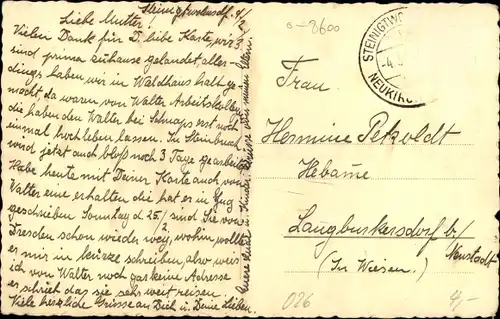 Steinigtwolmsdf. 4/2
Liebe Mutter!
Vielen Dank für D. liebe Karte, wir 3
sind prima zuhause gelandet, aller-
dings haben wir in Waldhaus halt ge-
macht da waren von Walter Arbeitskollegen
die haben den Walter bei Schnaps erst noch
einmal hoch leben lassen. In Steinbruch
wird jetzt auch bloß noch 3 Tage gearbeitet
Habe heute mit Deiner Karte auch von
Vatter eine erhalten die hat er im Zug
geschrieben Sonntag d 25/2 sind Sie von
Dresden schon wieder weg, wohin, wollte
er mir in kürze schreiben, also weis
ich von Walter noch gar keine Adresse
er schrieb das sie sehr weit reisen.
Viele herzliche Grüsse an Dich u. Deine Lieben.
Eure u. Kinder. Grüsse von meinen Eltern.
8600
STEINIGTWO
NEUKIRC
Frau
Hermine Petzoldt
Hebame
Langburkersdorf b/
Neustadt
(In Wiesen.)
026
4,-